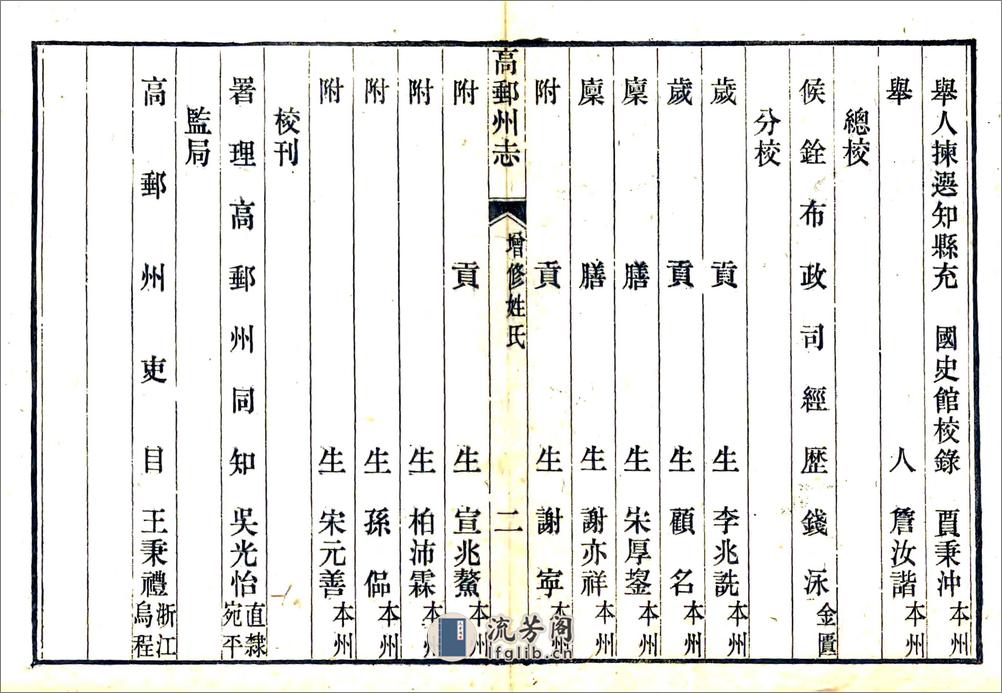 舉人揀選知縣充　國史館校錄　賈秉沖本州
舉人詹汝諧本州
總校
候銓布政司經歷錢泳金匱
分校
歲貢生李兆詵本州
歲貢生顧名本州
廩膳生宋厚鋆本州
廩膳生謝亦祥本州
附貢生謝寧本州
高郵州志　增修姓氏　二
附貢生宣兆鰲本州
附生柏沛霖本州
附生孫侣本州
附生宋元善本州
校刊
署理高郵州同知吳光怡直隸宛平
監局
高郵州吏目王秉禮浙江烏程
流芳阁
lfglib.cn